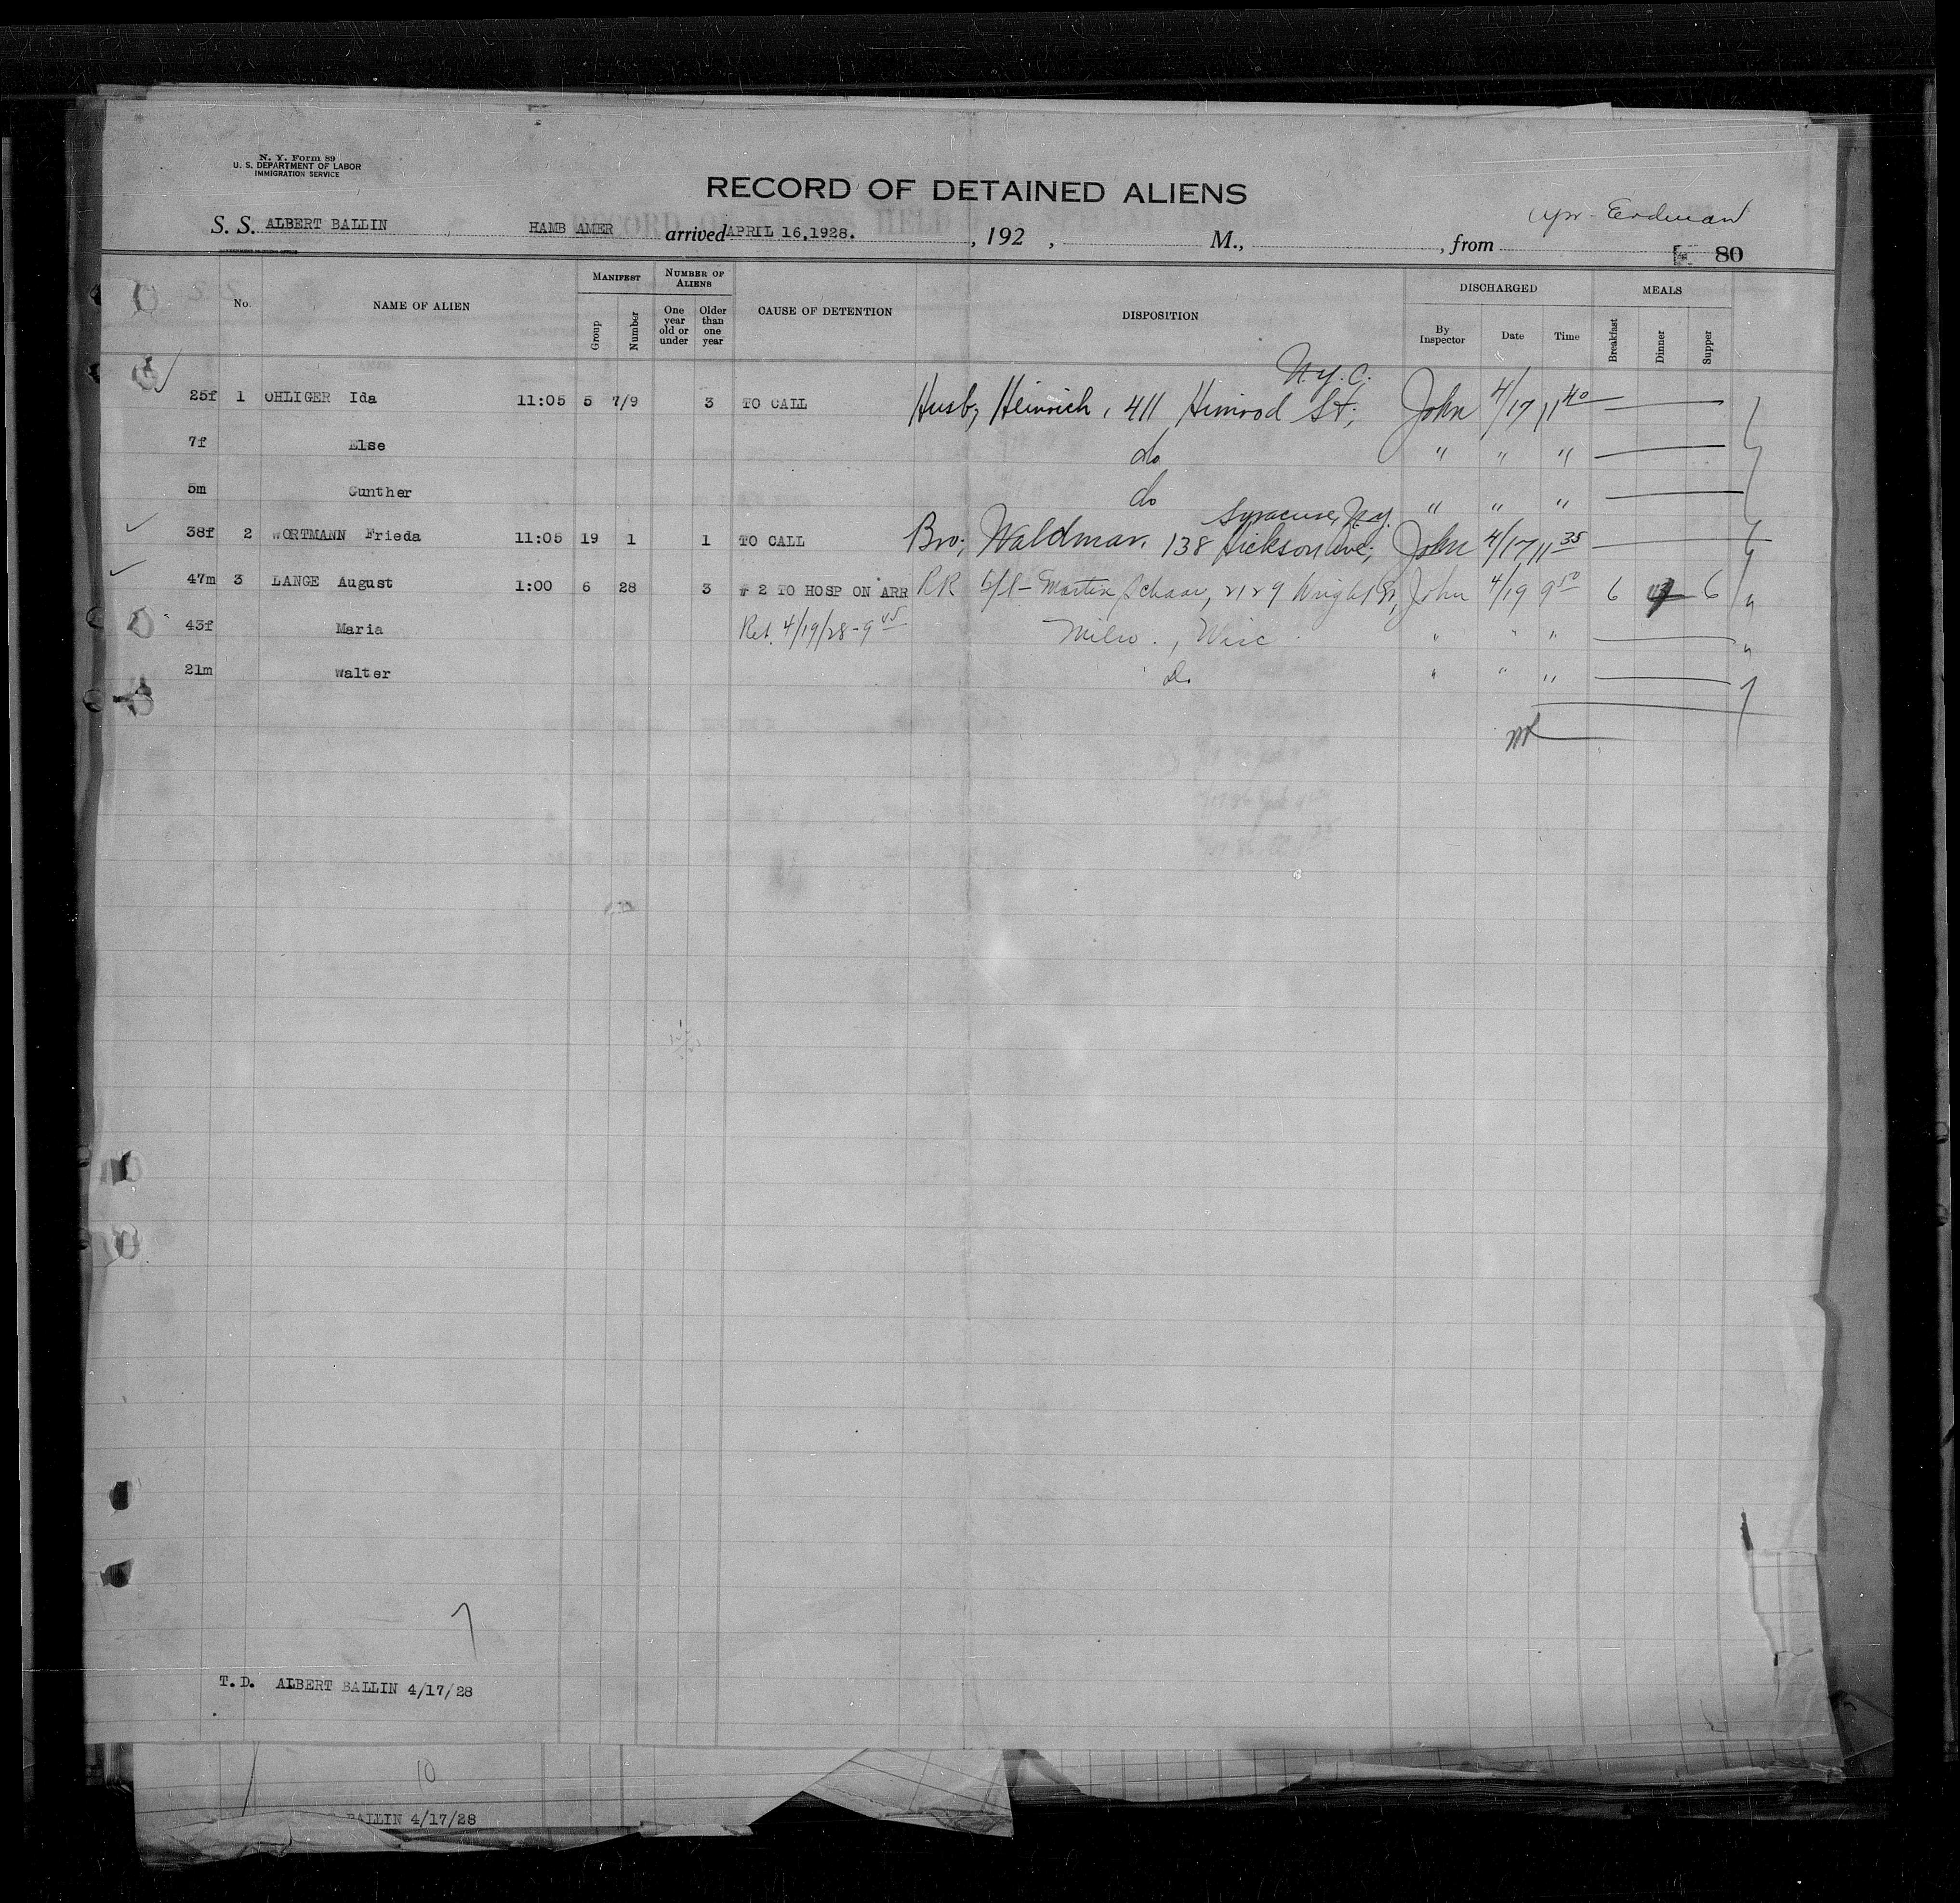 N. Y. Form 89
U. S. DEPARTMENT OF LABOR
IMMIGRATION SERVICE
RECORD OF DETAINED ALIENS
S. S. ALBERT BALLIN HAMB AMER arrived APRIL 16,1928. , 192 , M., , from Erdman
80
No. NAME OF ALIEN MANIFEST Group Number NUMBER OF ALIENS One year old or under Older than one year CAUSE OF DETENTION DISPOSITION DISCHARGED By Inspector Date Time MEALS Breakfast Dinner Supper
N.Y.C.
25f 1 OHLIGER Ida 11:05 5 7/9 3 TO CALL Husb; Heinrich, 411 Himrod St; John 4/17 11 40
7f Else do " " "
5m Gunther do " " "
Syracuse, N.Y.
38f 2 WORTMANN Frieda 11:05 19 1 1 TO CALL Bro; Waldmar, 138 Hickson Ave; John 4/17 11 35
47m 3 LANGE August 1:00 6 28 3 # 2 TO HOSP ON ARR RR Martin Schaar, 2129 Wright St, John 4/19 9 50 6 6 "
43f Maria Ret. 4/19/28-9 45 Milw., Wisc. " " " "
21m Walter Do " " "
T.D. ALBERT BALLIN 4/17/28
10
BALLIN 4/17/28